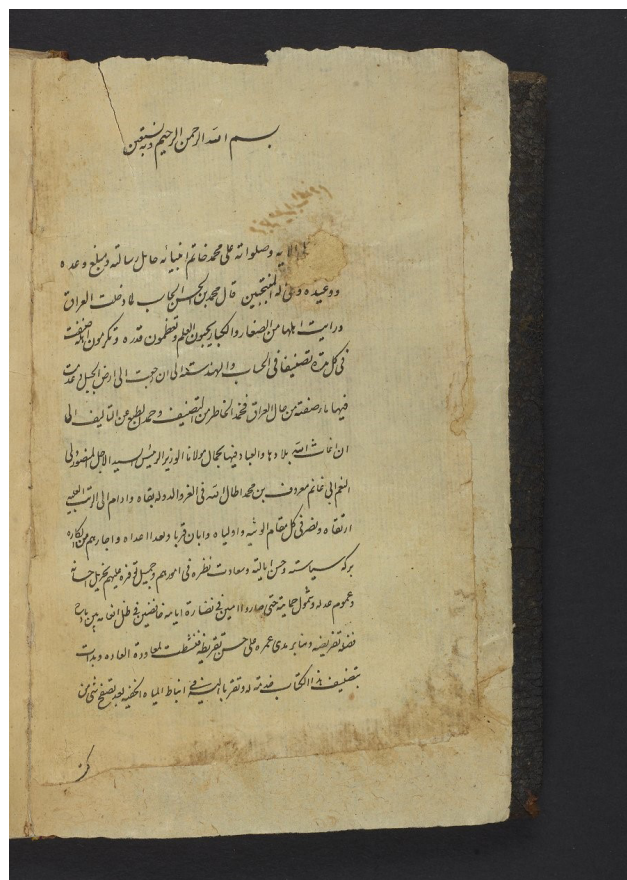 بسم الله الرحمن الرحيم وبه نستعين
الايه وصلواته على محمد خاتم انبيائه حامل رسالته ومبلغ وعده
ووعيده وعلى اله المنتجبين قال محمد بن الحسن الحاسب لما دخلت العراق
ورايت اهلها من الصغار والكبار يحبون العلم ويعظمون قدره ويكرمون اهله صنفت
فى كل مدة تصنيفا فى الحساب والهندسة الى ان خرجت الى ارض الجبل وعدمت
فيها ما رصفته من حال العراق فخمد الخاطر من التصنيف وجمد الطبع من التاليف الى
ان اغاث الله بلادها والعباد فيها بجمال مولانا الوزير الرئيس السيد الاجل المنصور ولى
النعم ابى غانم معروف بن محمد اطال الله فى العز والدولة بقاه وادام الى الرتب العلية
ارتقاه ونصر فى كل مقام الويته واولياه وابان قربا وبعدا اعداه واجارهم من المكاره
بركة سياسته وحسن ايالته وسعادت نظره فى امورهم وجميل توفره عليهم بجزيل احسانه
وعموم عدله وشمول حمايته حتى صاروا امنين فى نضارة ايامه خافضين فى ظل انعامه بين
عمره على حسن تقريظه فنشطت لمعاودة العادة وبدات
بتصنيف هذا الكتاب خدمة له وتقربا اليه فى انباط المياه الخفية بعد تصفح شئ من